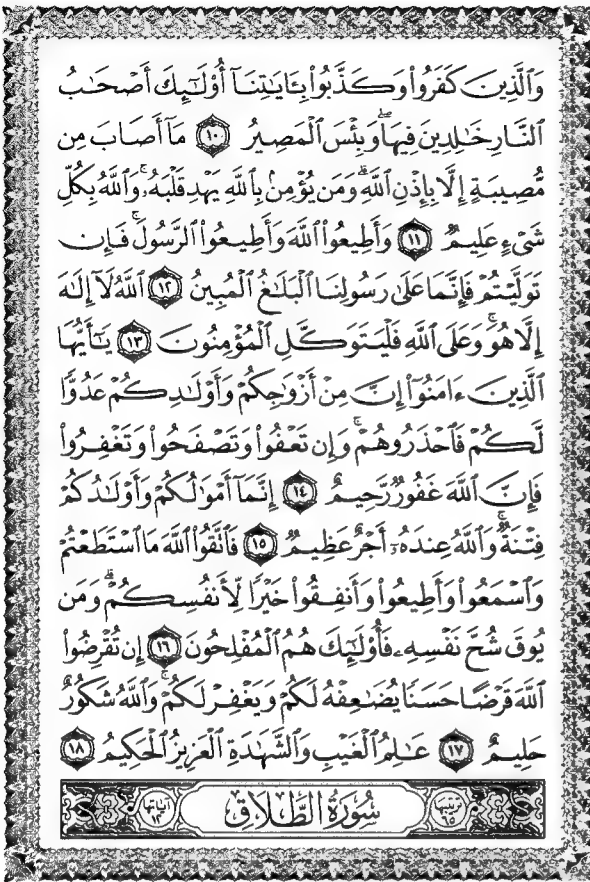 وَٱلَّذِينَ كَفَرُوا۟ وَكَذَّبُوا۟ بِـَٔايَـٰتِنَآ أُو۟لَـٰٓئِكَ أَصْحَـٰبُ
ٱلنَّارِ خَـٰلِدِينَ فِيهَا ۖ وَبِئْسَ ٱلْمَصِيرُ ١٠ مَآ أَصَابَ مِن
مُّصِيبَةٍ إِلَّا بِإِذْنِ ٱللَّهِ ۗ وَمَن يُؤْمِنۢ بِٱللَّهِ يَهْدِ قَلْبَهُۥ ۚ وَٱللَّهُ بِكُلِّ
شَىْءٍ عَلِيمٌ ١١ وَأَطِيعُوا۟ ٱللَّهَ وَأَطِيعُوا۟ ٱلرَّسُولَ ۚ فَإِن
تَوَلَّيْتُمْ فَإِنَّمَا عَلَىٰ رَسُولِنَا ٱلْبَلَـٰغُ ٱلْمُبِينُ ١٢ ٱللَّهُ لَآ إِلَـٰهَ
إِلَّا هُوَ ۚ وَعَلَى ٱللَّهِ فَلْيَتَوَكَّلِ ٱلْمُؤْمِنُونَ ١٣ يَـٰٓأَيُّهَا
ٱلَّذِينَ ءَامَنُوٓا۟ إِنَّ مِنْ أَزْوَٰجِكُمْ وَأَوْلَـٰدِكُمْ عَدُوًّا
لَّكُمْ فَٱحْذَرُوهُمْ ۚ وَإِن تَعْفُوا۟ وَتَصْفَحُوا۟ وَتَغْفِرُوا۟
فَإِنَّ ٱللَّهَ غَفُورٌ رَّحِيمٌ ١٤ إِنَّمَآ أَمْوَٰلُكُمْ وَأَوْلَـٰدُكُمْ
فِتْنَةٌ ۚ وَٱللَّهُ عِندَهُۥٓ أَجْرٌ عَظِيمٌ ١٥ فَٱتَّقُوا۟ ٱللَّهَ مَا ٱسْتَطَعْتُمْ
وَٱسْمَعُوا۟ وَأَطِيعُوا۟ وَأَنفِقُوا۟ خَيْرًا لِّأَنفُسِكُمْ ۗ وَمَن
يُوقَ شُحَّ نَفْسِهِۦ فَأُو۟لَـٰٓئِكَ هُمُ ٱلْمُفْلِحُونَ ١٦ إِن تُقْرِضُوا۟
ٱللَّهَ قَرْضًا حَسَنًا يُضَـٰعِفْهُ لَكُمْ وَيَغْفِرْ لَكُمْ ۚ وَٱللَّهُ شَكُورٌ
حَلِيمٌ ١٧ عَـٰلِمُ ٱلْغَيْبِ وَٱلشَّهَـٰدَةِ ٱلْعَزِيزُ ٱلْحَكِيمُ ١٨
سُورَةُ ٱلطَّلَاقِ